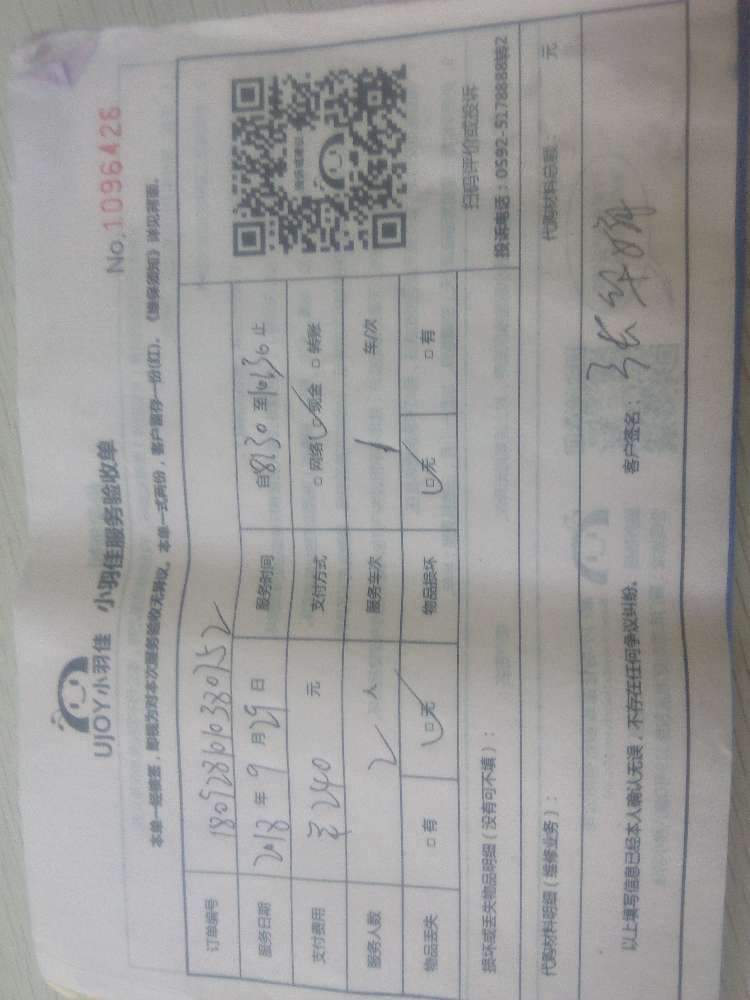 UJOY小羽佳 小羽佳服务验收单
No.1096426
本单一经填签，即视为对本次服务验收无异议。本单一式两份，客户留存一份(红)。《维保须知》详见背面。
订单编号
服务日期 2018 年 9 月 29 日 服务时间 自8:30 至10:30 止
支付费用 ¥240 元 支付方式 □ 网络 □ 现金 □ 转账
服务人数 2 人 服务车次 1 车/次
物品丢失 □ 有 □ 无 物品损坏 □ 无 □ 有
扫码评价或投诉
投诉电话：0592-5178888转2
损坏或丢失物品明细（没有可不填）：
代购材料明细（维修业务）： 代购材料总额： 元
以上填写信息已经本人确认无误，不存在任何争议纠纷。 客户签名：